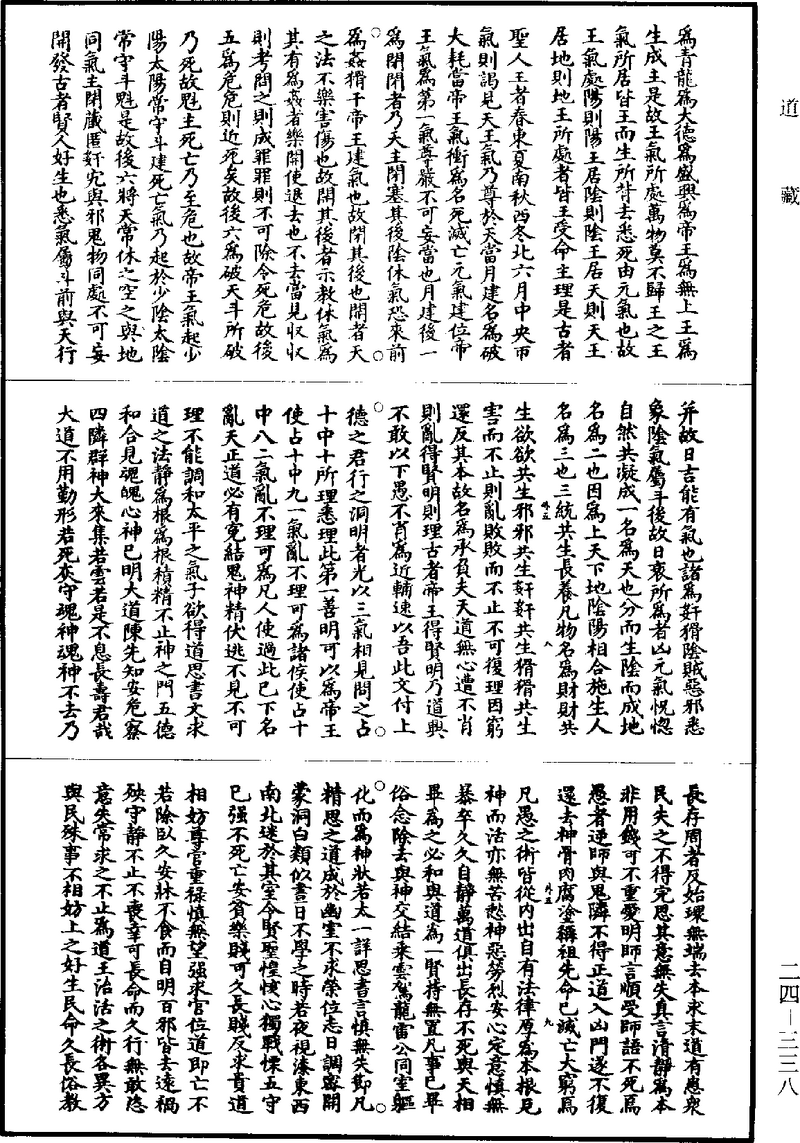 道藏
爲青龍爲大德爲盛興爲帝王爲無上王爲
生成主是故王氣所處萬物莫不歸王之王
氣所居皆王而生所背去悉死由元氣也故
王氣處陽則陽王居陰則陰王居天則天王
居地則地王所處者皆王受命主理是古者
聖人王者春東夏南秋西冬北六月中央帀
氣則謁見天王氣乃尊於天當月建名爲破
大耗當帝王氣衝爲名死滅亡元氣建位帝
王氣爲第一氣尊嚴不可妄當也月建後一
爲閉閉者乃天主閉塞其後陰休氣恐來前
爲姦猾干帝王建氣也故閉其後也開者天
之法不樂害傷也故開其後者示教休氣爲
其有爲姦者樂開使退去也不去當見收收
則考問之則成罪罪則不可除令死危故後
五爲危危則近死矣故後六爲破天斗所破
乃死故魁主死亡乃至危也故帝王氣起少
陽太陽常守斗建死亡氣乃起於少陰太陰
常守斗魁是故後六將天常休之空之與地
同氣主閉藏匿奸宄與邪鬼物同處不可妄
開發古者賢人好生也悉氣屬斗前與天行
并故日吉能有氣也諸爲奸猾陰賊惡邪悉
象陰氣屬斗後故日衰所爲者凶元氣怳惚
自然共凝成一名爲天也分而生陰而成地
名爲二也因爲上天下地陰陽相合施生人
名爲三也三統共生長養凡物名爲財財共
生欲欲共生邪邪共生奸奸共生猾猾共生
害而不止則亂敗敗而不止不可復理因窮
還反其本故名爲承負夫天道無心遭不肖
則亂得賢明則理古者帝王得賢明乃道興
不敢以下愚不肖爲近輔速以吾此文付上
德之君行之洞明者光以三氣相見問之占
十中十所理悉理此第一善明可以爲帝王
使占十中九一氣亂不理可爲諸侯使占十
中八二氣亂不理可爲凡人使過此已下名
亂天正道必有寃結鬼神精伏逃不見不可
理不能調和太平之氣子欲得道思書文求
道之法靜爲根爲根積精不止神之門五德
和合見魂魄心神已明大道陳先知安危察
四隣群神大來集若雲若是不息長壽君哉
大道不用勤形若死灰守魂神魂神不去乃
長存周者反始環無端去本求末道有患衆
民失之不得完思其意無失真言清靜爲本
非用錢可不重愛明師言順受師語不死焉
愚者逆師與鬼隣不得正道入凶門遂不復
還去神骨肉腐塗稱祖先命已滅亡大窮焉
凡愚之術皆從內出自有法律原爲本根見
神而活亦無苦愁神惡勞烈安心定意慎無
暴卒久久自靜萬道俱出長存不死與天相
畢爲之必和與道爲一賢持無置凡事已畢
俗念除去與神交結乘雲駕龍雷公同室軀
化而爲神狀若太一詳思書言慎無失節凡
精思之道成於幽室不求榮位志日調密開
蒙洞白類似晝日不學之時若夜視漆東西
南北迷於其室令賢聖惶恢心獨戰慄五守
已强不死亡安貧樂賤可久長賤反求貴道
相妨尊官重祿慎無望强求官位道即亡不
若除臥久安牀不食而自明百邪皆去遠禍
殃守靜不止不喪幸可長命而久行無敢恣
意失常求之不止爲道王治活之術各異方
與民殊事不相妨上之好生民命久長俗教
外五　八
外五　九
二四—三三八